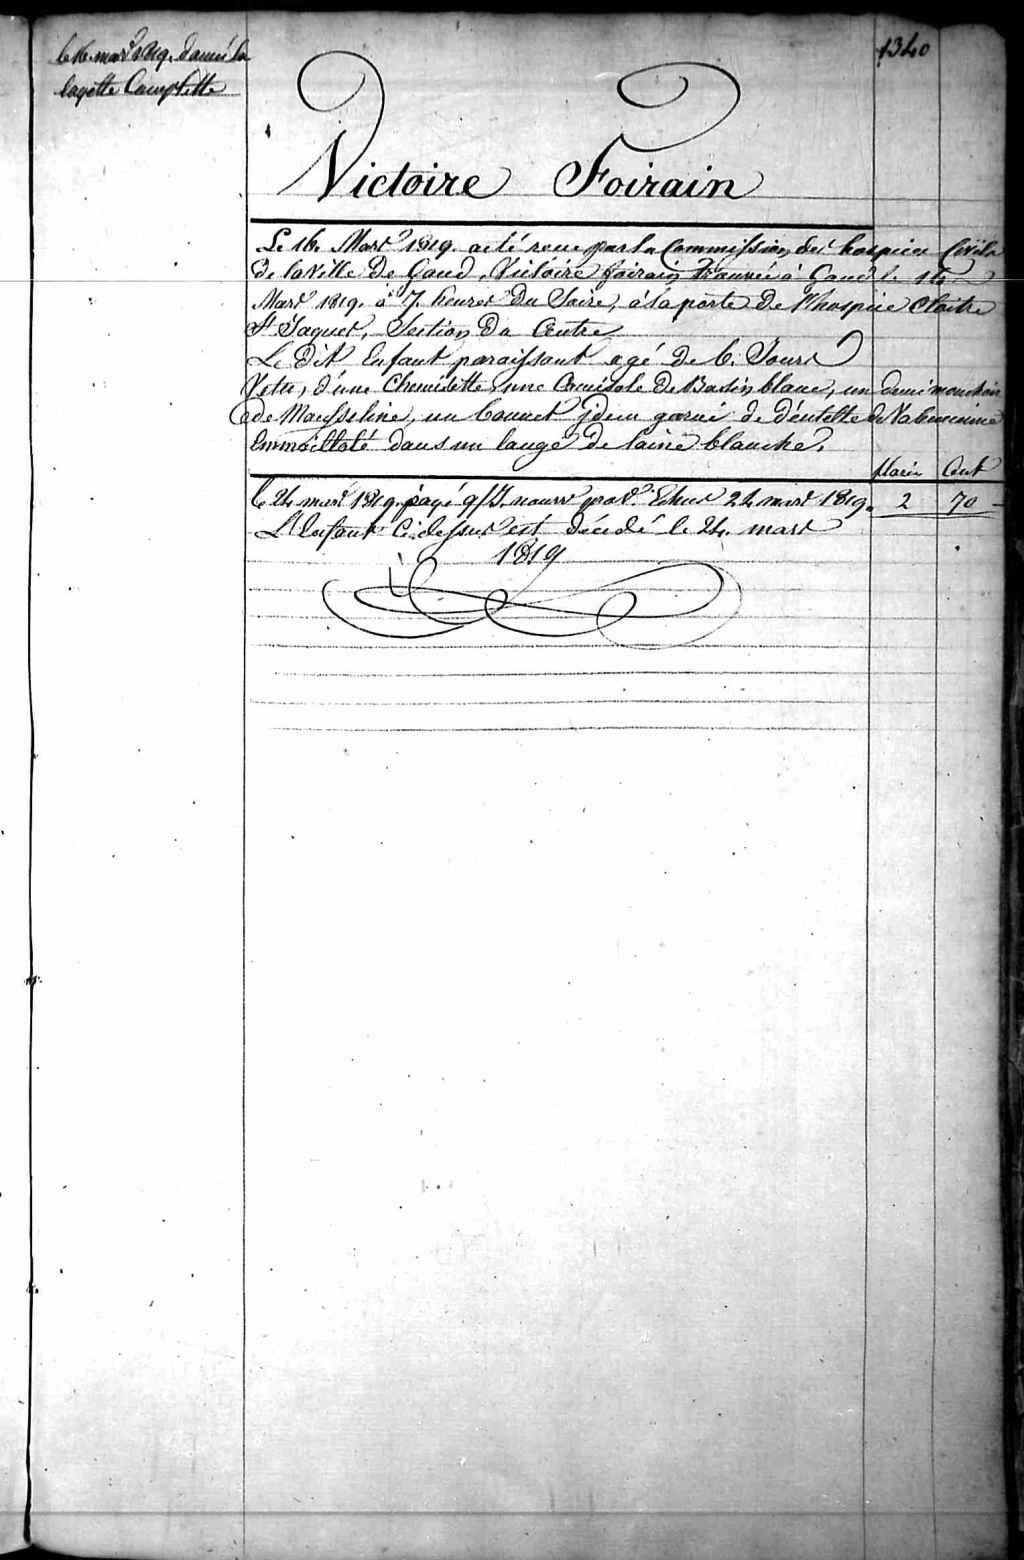 le 16 mars 1819. donné la
layette Complette
1340
Victoire Foirain
Le 16 Mars 1819. a été recue par la Commission des hospices Civils
de la Ville de Gand, Victoire foirain trouvée à Gand le 16
Mars 1819. à 7. heures du Soire, à la porte de l'hospice Cloitre
St Jaques, Section du Centre
Le dit Enfant paraissant agé de 6. Jours
Vetu, d'une Chemisette une Camisole de Basin blanc, un demi mouchoir
de Mousseline, un bonnet jdem garni de déntelle de Valencienne
Emmailloté dans un lange de laine blanche.
florin Cent
le 24 mars 1819. payé 24 mars 1819. 2 70
L'Enfant Ci dessus est décédé le 24. mars
1819